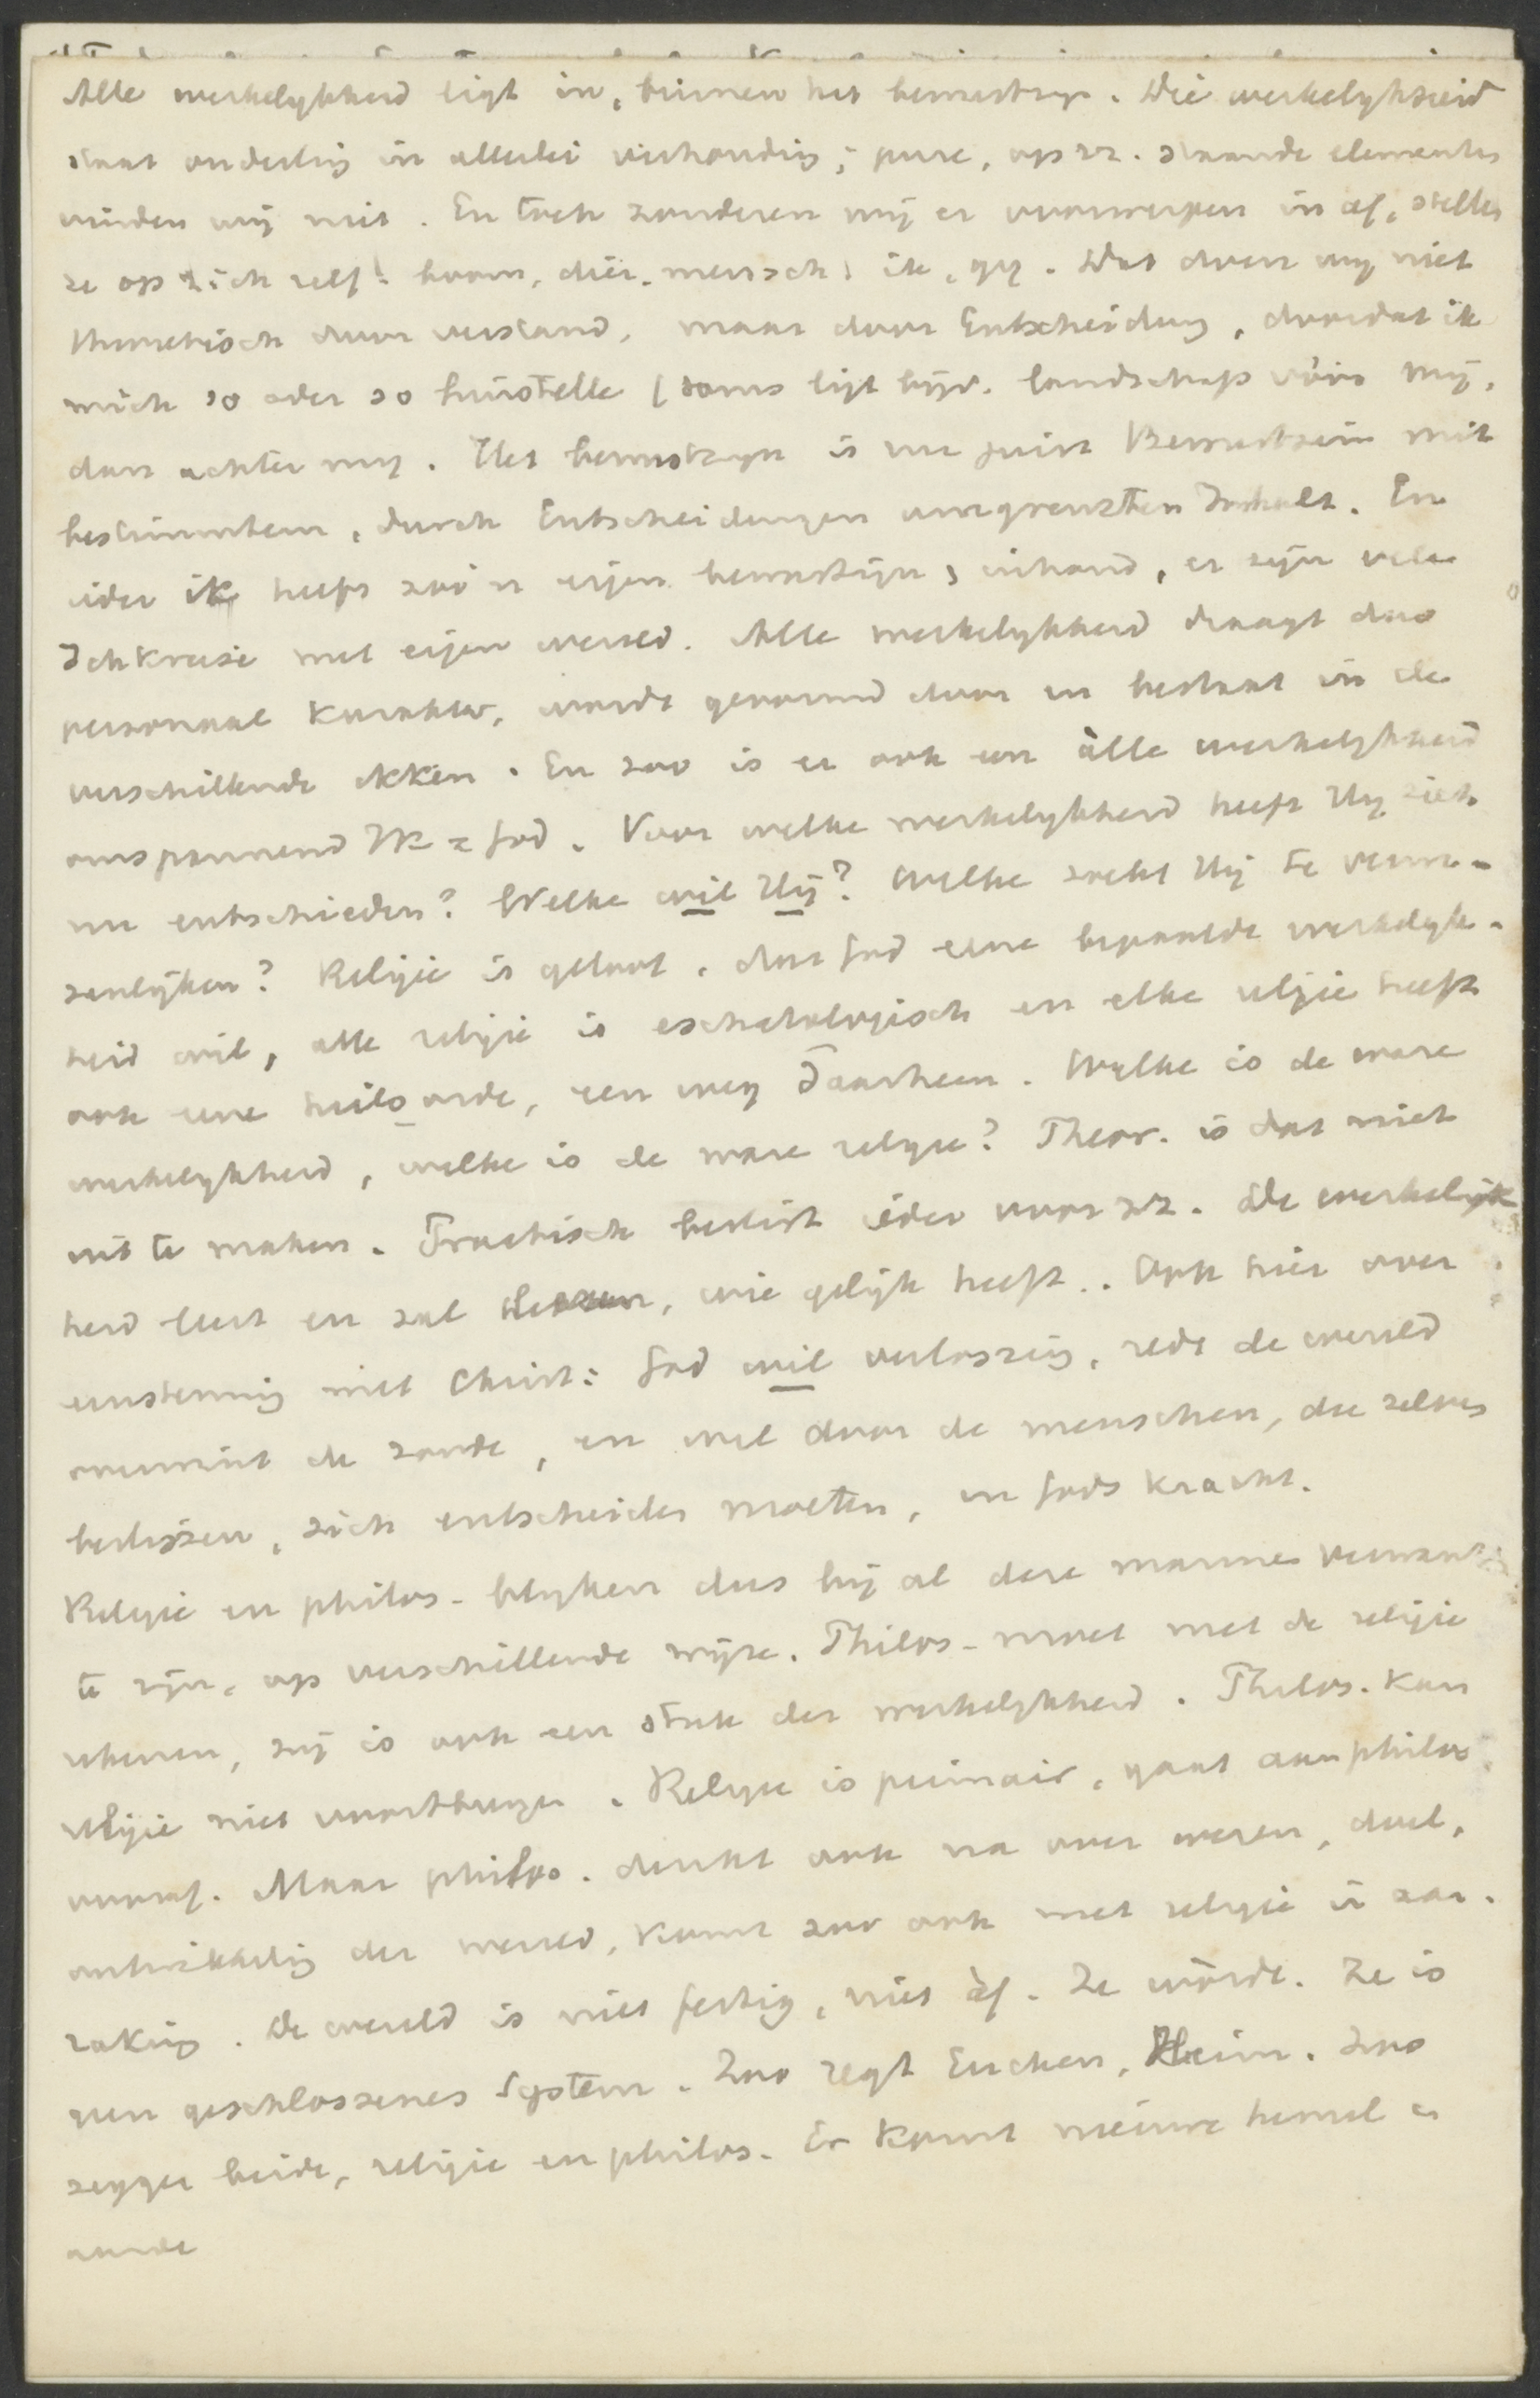 Alle werkelykheid ligt in, binnen het bewustzyn. Die werkelykheid
staat onderling in allerlei verhouding; pure, op zz. staande elementen
vinden wij niet. En toch zonderen wij er voorwerpen in af, stellen
ze op zich zelf: boom, dier, mensch, ik, gij. Dat doen wij niet
theoretisch door verstand, maar door Entscheidung, doordat ik
mich so oder so hinstelle (soms ligt bijv. landschap vóór mij,
dan achter mij. Het bewustzyn is nu juist Bewustsein mit
bestimmtem, durch Entscheidungen umgrenzten Inhalt. En
ieder ik heeft zoo'n eigen bewustzijn, inhoud, er zijn vele
Ichkreise met eigen wereld. Alle werkelykheid draagt dus
personaal karakter, wordt gevormd door en bestaat in de
verschillende ikken. En zoo is er ook een àlle werkelykheid
omspannend Ik = God. Voor welke werkelykheid heeft Hij zich
nu entschieden? Welke wil Hij? Welke zoekt Hij te verwe-
zenlijken? Religie is geloof, dat God eene bepaalde werkelyk-
heid wil, alle religie is eschatologisch en elke religie heeft
ook eene heilsorde, een weg daarheen. Welke is de ware
werkelykheid, welke is de ware religie? Theor. is dat niet
uit te maken. Practisch beslist ieder voor zz. De werkelyk
heid leert en zal leeren, wie gelijk heeft.. Ook hier over
eenstemming met Christ: God wil verlossing, redt de wereld
overwint de zonde, en wel door de menschen, die zelves
beslissen, zich entscheiden moeten, in Gods kracht.
Religie en philos. blyken dus bij al deze mannen verwant
te zijn, op verschillende wijze. Philos. moet met de religie
rekenen, zij is ook een stuk der werkelykheid. Philos. kan
religie niet voortbrengen. Religie is primair, gaat aan philos.
vooraf. Maar philos. denkt ook na over wezen, doel,
ontwikkeling der wereld, komt zoo ook met religie in aan-
raking. De wereld is niet fertig, niet àf. Ze wòrdt. Ze is
geen geschlossenes System. Zoo zegt Eucken, Heim. Zoo
zeggen beide, religie en philos. Er komt nieuwe hemel en
aarde